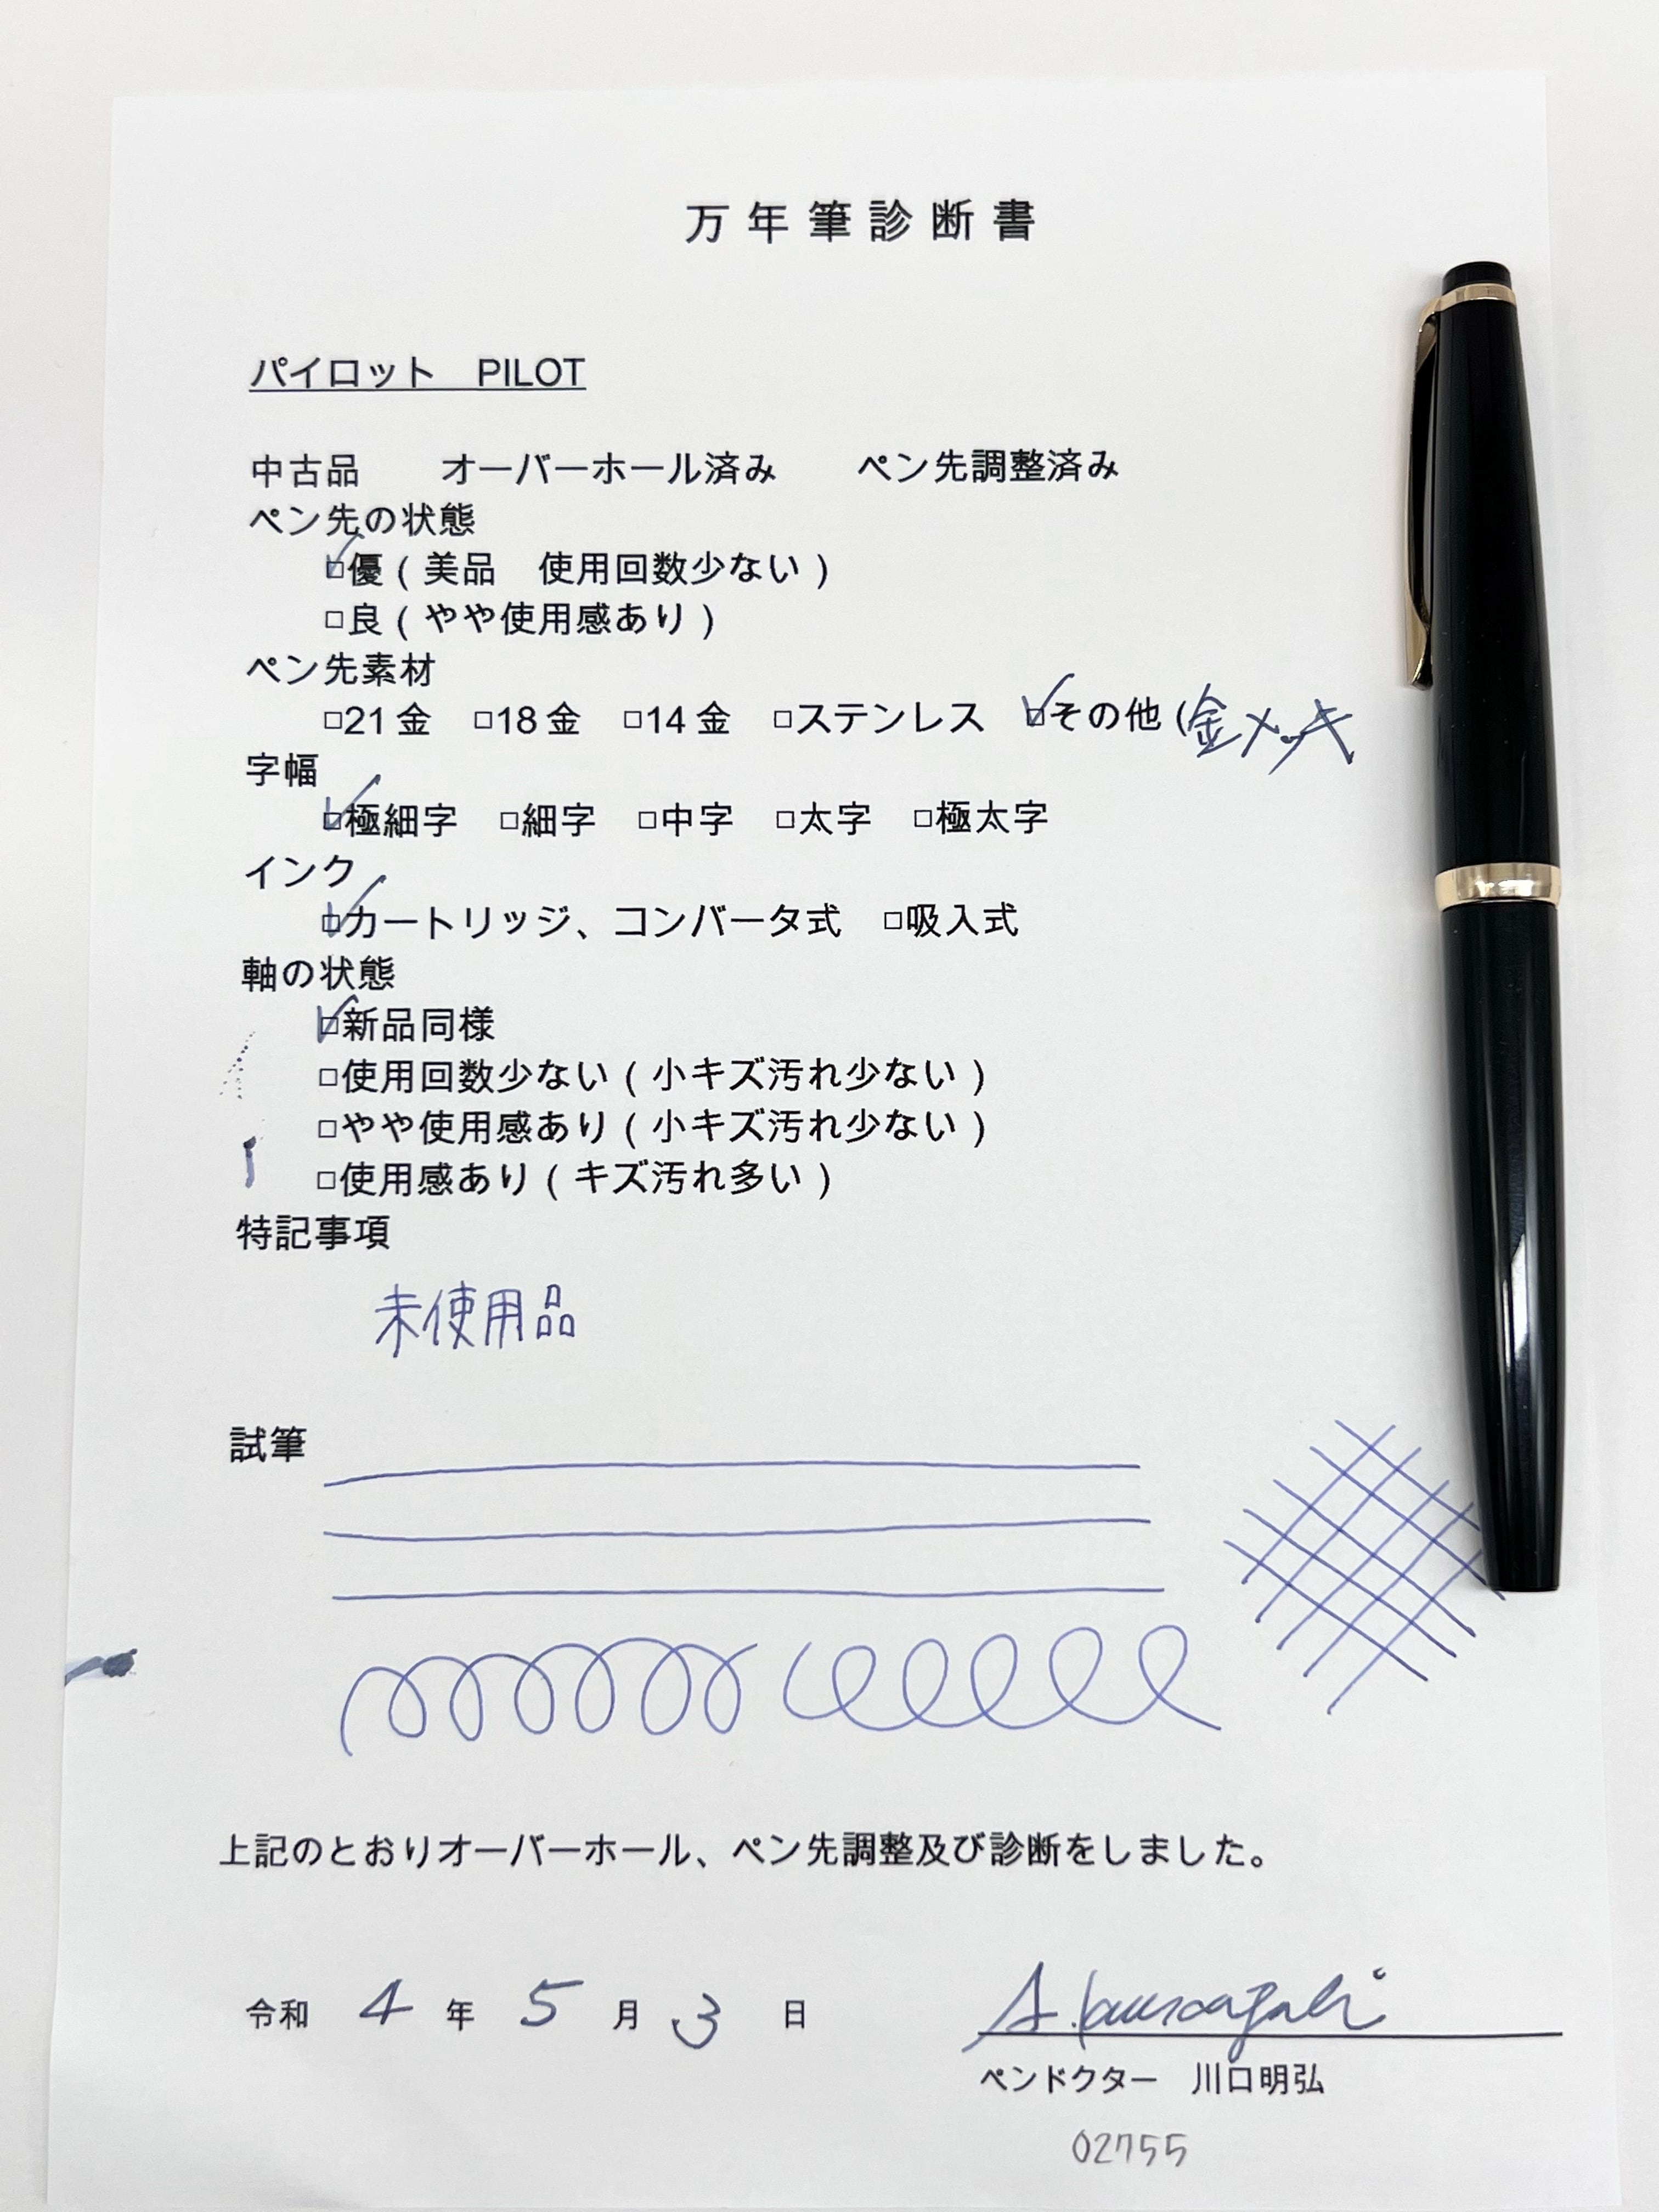 万年筆診断書
パイロット　PILOT
中古品　　オーバーホール済み　　ペン先調整済み
ペン先の状態
☑優（美品　使用回数少ない）
□良（やや使用感あり）
ペン先素材
□21金　□18金　□14金　□ステンレス　☑その他（金メッキ
字幅
☑極細字　□細字　□中字　□太字　□極太字
インク
☑カートリッジ、コンバータ式　□吸入式
軸の状態
☑新品同様
□使用回数少ない（小キズ汚れ少ない）
□やや使用感あり（小キズ汚れ少ない）
□使用感あり（キズ汚れ多い）
特記事項
未使用品
試筆
上記のとおりオーバーホール、ペン先調整及び診断をしました。
令和 4 年 5 月 3 日
ペンドクター　川口明弘
02755